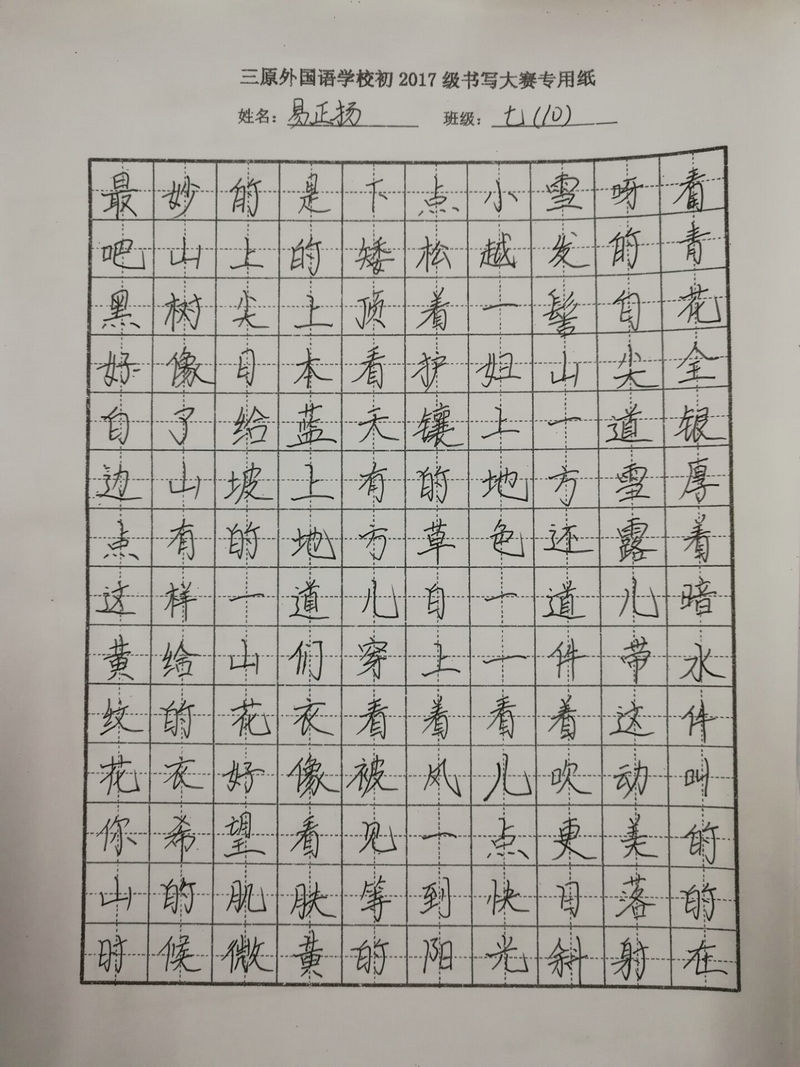 三原外国语学校初2017级书写大赛专用纸
姓名：易正扬 班级：七(10)
最妙的是下点小雪呀看
吧山上的矮松越发的青
黑树尖上顶着一髻白花
好像日本看护妇山尖全
白了给蓝天镶上一道银
边山坡上有的地方雪厚
点有的地方草色还露着
这样一道儿白一道儿暗
黄给山们穿上一件带水
纹的花衣看着看着这件
花衣好像被风儿吹动叫
你希望看见一点更美的
山的肌肤等到快日落的
时候微黄的阳光斜射在